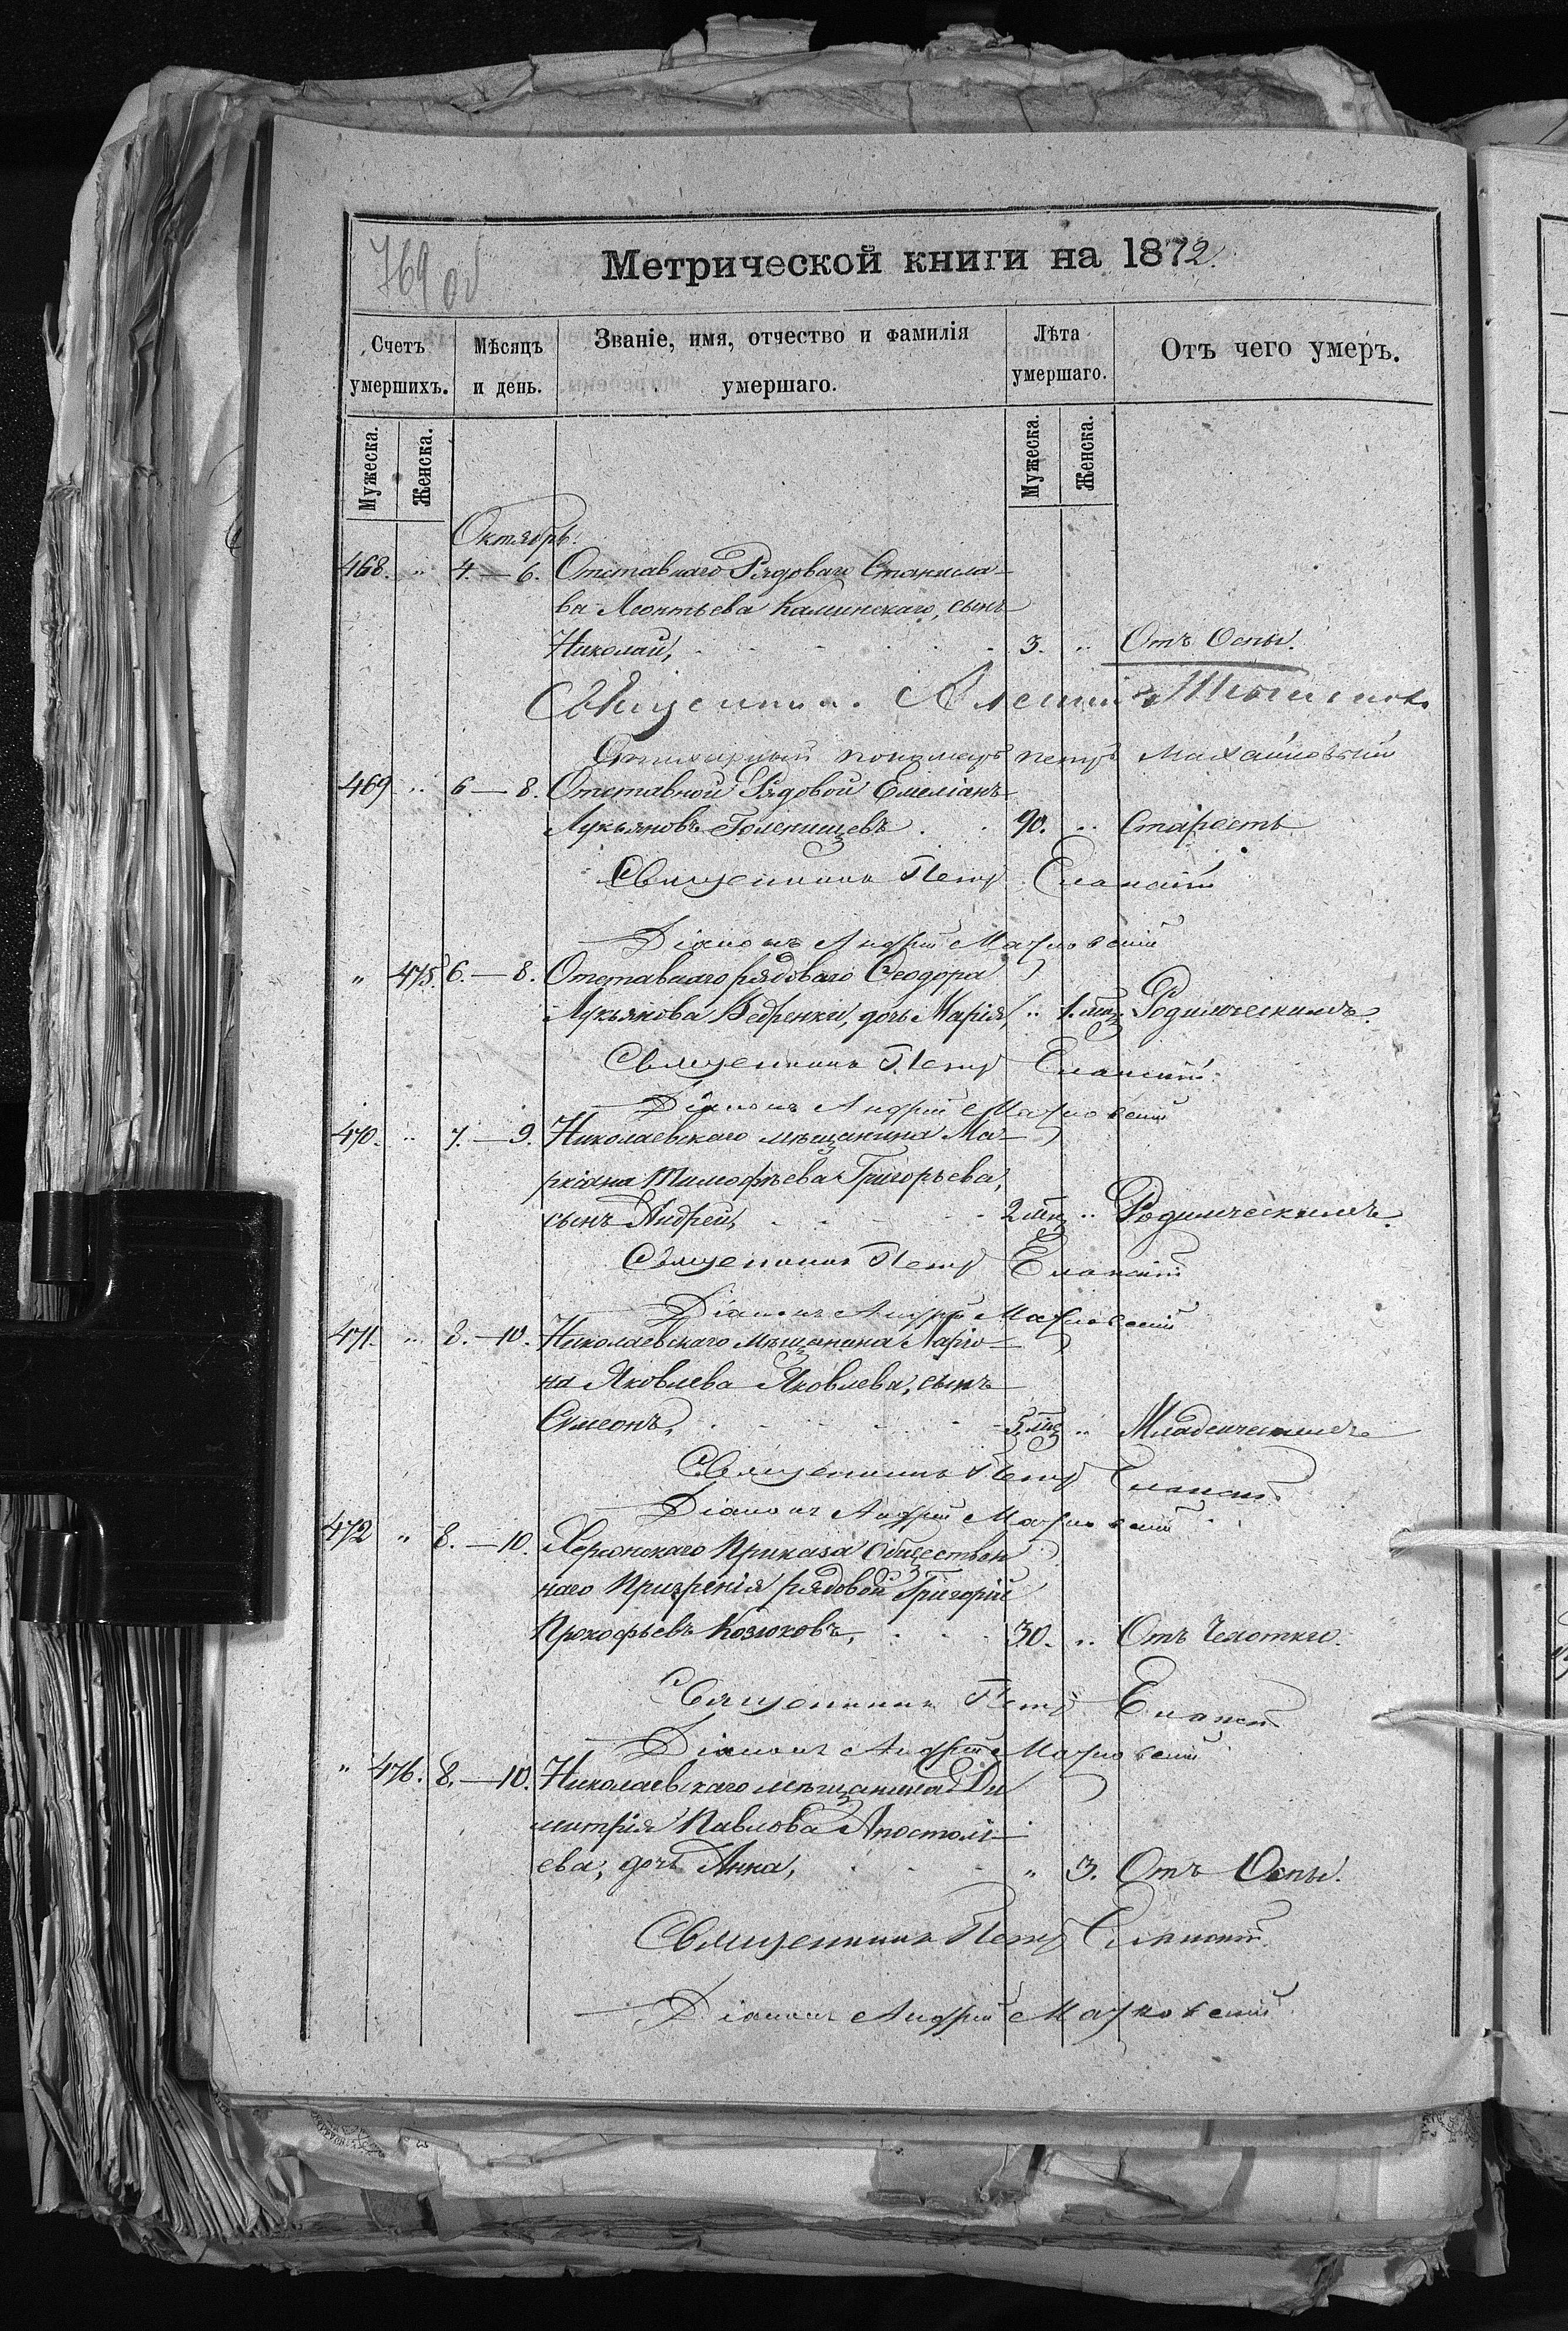 769 об
Метрической книги на 1872.
Счетъ умершихъ.
Мѣсяцъ и день.
Званіе, имя, отчество и фамилія умершаго.
Лѣта умершаго.
Отъ чего умеръ.
Мужеска. Женска. Мужеска. Женска.
Октябрь.
468. " 4.—6. Отставнаго Рядоваго Станисла-
ва Леонтьева Калинскаго, сынъ
Николай, 3. " Отъ Оспы.
Священник Алексий
пономарь Петръ Михайловский
469 " 6—8. Отставной Рядовой Емеліанъ
Лукьяновъ Голенищевъ 90. " Старость
Священникъ Петръ Еланскій
Діаконъ Андрей
" 475. 6.—8. Отставнаго рядоваго Ѳеодора
Лукьянова Ведренки, дочь Марія, " 1. мѣц. Родимческимъ.
Священникъ Петръ Еланскій
Діаконъ Андрей
470. " 7.—9. Николаевскаго мѣщанина Ма-
ркіана Тимофѣева Григорьева,
сынъ Андрей, 2 мѣц " Родимческимъ.
Священникъ Петръ Еланскій
Діаконъ Андрей
471. " 8.—10. Николаевскаго мѣщанина Ларіо-
на Яковлева Яковлева, сынъ
Симеонъ, 5. мѣц " Младенческимъ
Священникъ Петръ Еланскій
Діаконъ Андрей
472 " 8.—10. Херсонскаго Приказа Обществен
наго Призренія рядовой Григорій
Прокофьевъ Козюковъ, 30. " Отъ Чахотки.
Священникъ Петръ Еланскій
Діаконъ Андрей
" 476. 8.—10. Николаевскаго мѣщанина Ди
митрія Павлова Апостоли-
ева, дочь Анна, " 3. Отъ Оспы.
Священникъ Петръ Еланскій
Діаконъ Андрей